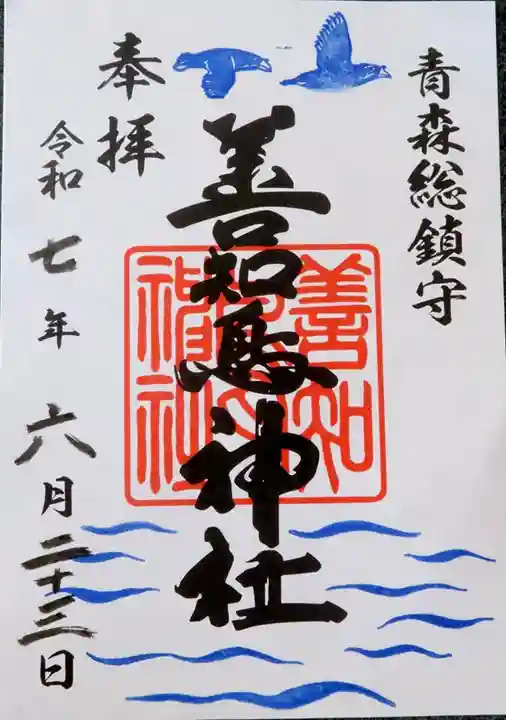 青森総鎮守
善知鳥神社
善知鳥神社
奉拝
令和七年六月二十三日